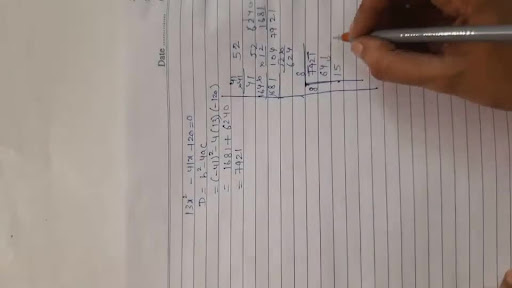 Date
13x² - 41x - 120 = 0
D = b² - 4ac
= (-41)² - 4(13)(-120)
= 1681 + 6240
= 7921
41
×41
41
164×
1681
52
52
×12
104
6240
1681
7921
624
8
8
7921
64↓
15